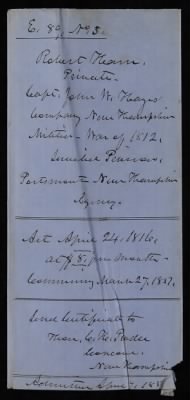 Robert Hearn,
Private,
Capt. John W. Hayes
Company New Hampshire
Militia - War of 1812,
Invalid Pension,
Portsmouth New Hampshire
Agency.
Act April 24, 1816,
at $8, per month
Commencing March 27, 1837.
Send Certificate to
Hon.
Concord,
New Hampshire
Admitted April